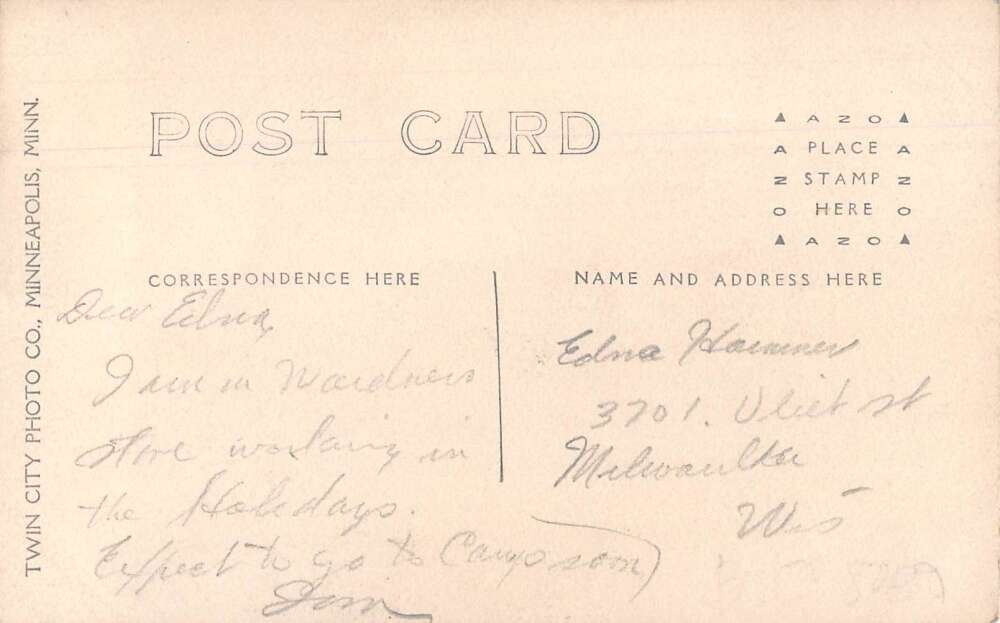 TWIN CITY PHOTO CO., MINNEAPOLIS, MINN.
POST CARD
▲ AZO ▲
A PLACE A
Z STAMP Z
O HERE O
▲ AZO ▲
CORRESPONDENCE HERE
NAME AND ADDRESS HERE
Dear Edna,
I am in
store working in
the Holedays.
Expect to go to Camp soon
Edna Hammer
3701. Vliet st
Milwaulkee
Wis